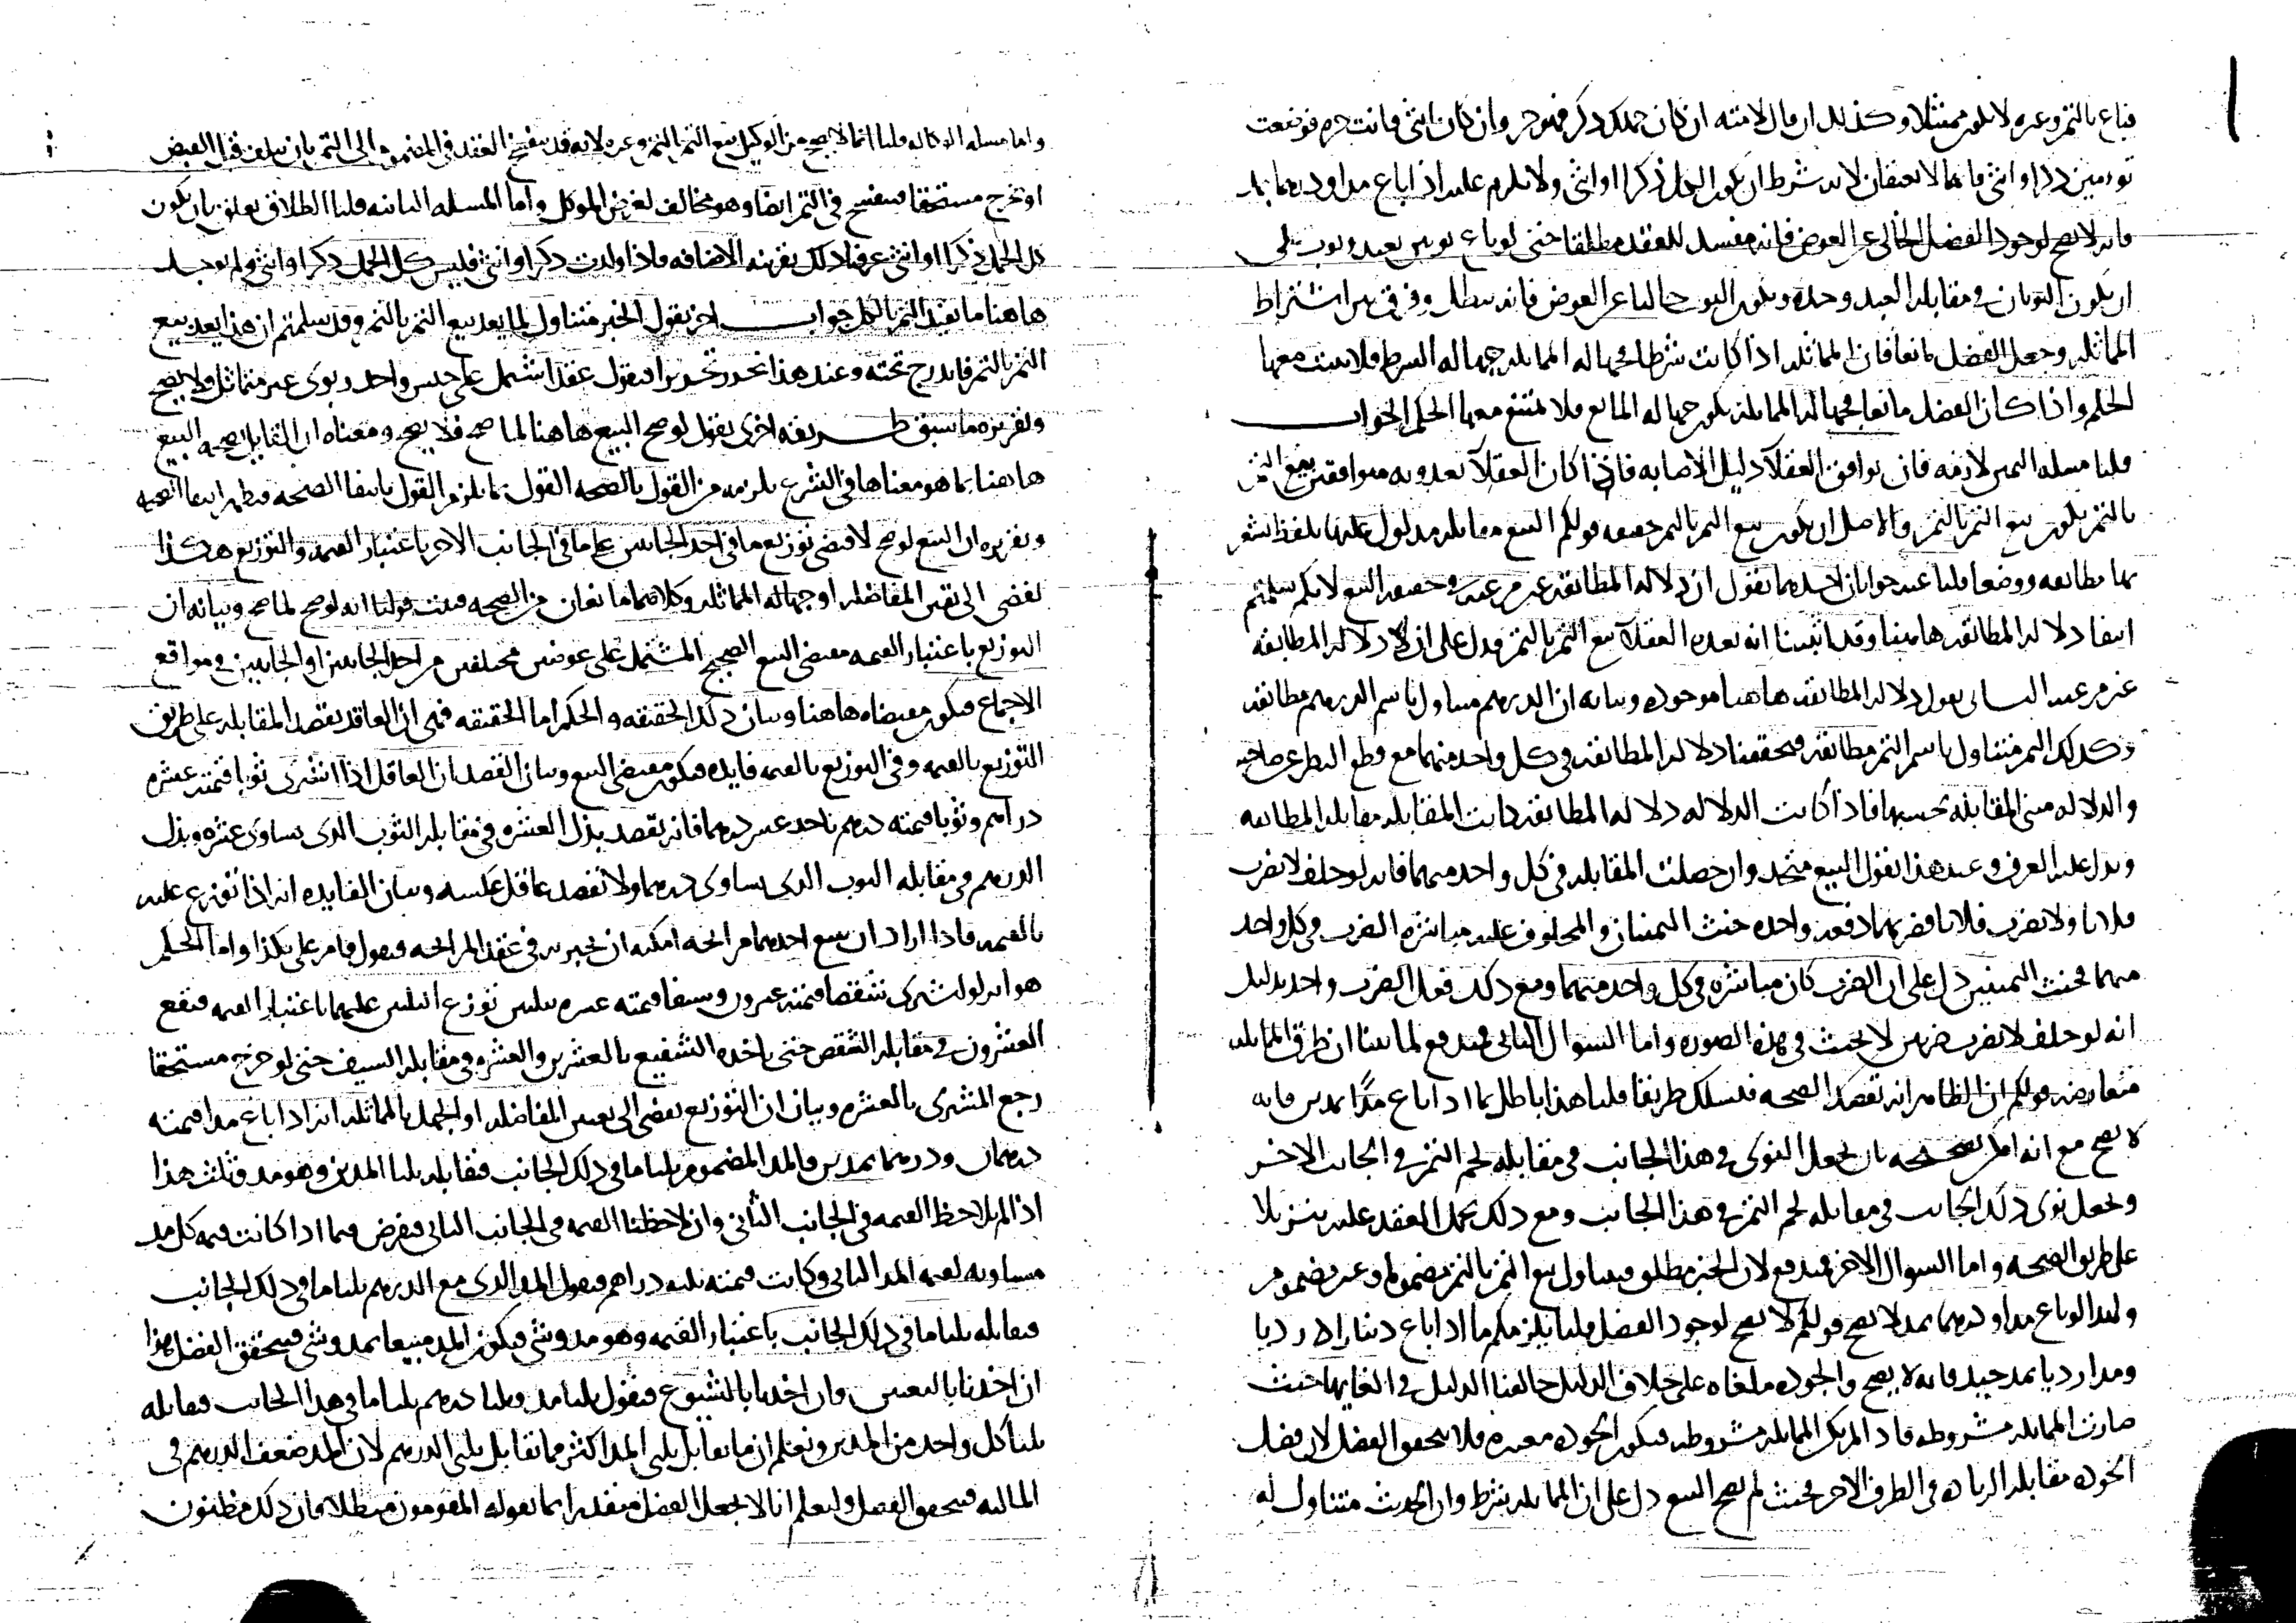 فباع بالتمر وغيره لا يكون ممتثلا وكذلك ان قال لامته ان كان حملك ذكر فهو حر وان كان انثى فانت حره فوضعت
تومين ذكرا وانثى فانهما لا يعتقان لانه شرط ان يكون الحمل ذكرا او انثى ولا يلزم عليه اذا باع مدا ودرهما بمد
فانه لا يصح لوجود الفضل الخالي عن العوض فانه مفسد للعقد مطلقا حتى لو باع ثوبين بعبد وثوب على
ان يكون الثوبان في مقابله العبد وحده ويكون الثوب خاليا عن العوض فانه يبطل وفرق بين اشتراط
المماثله وجعل الفضل مانعا فان المماثله اذا كانت شرطا فجهاله المماثله جهاله الشرط فلا يثبت معها
الحكم واذا كان الفضل مانعا فجهاله المماثله يكون جهاله المانع فلا يمتنع معها الحكم الجواب
قلنا مسله اليمين لازمه فان توافق العقلا دليل الاصابه فاذا كان العقلا يعدونه بيع التمر
بالتمر يكون بيع التمر بالتمر والاصل ان يكون بيع التمر بالتمر حقيقه قولكم البيع مقابله مدلول عليها بلفظ يشعر
بها مطابقه ووضعا قلنا عنه جوابان احدهما نقول ان دلاله المطابقه غير مرعيه في حقيقه البيع لانكم سلمتم
انتفا دلاله المطابقه هاهنا وقد اثبتنا انه يعده العقلا بيع التمر بالتمر فدل على ان دلاله المطابقه
غير مرعيه الثاني نقول دلاله المطابقه هاهنا موجوده وبيانه ان الدرهم متناول باسم الدرهم مطابقه
وكذلك التمر متناول باسم التمر مطابقه فتحققنا دلاله المطابقه في كل واحد منهما مع قطع النظر عن صاحبه
والدلاله مبنى المقابله بحسبها فاذا كانت الدلاله دلاله المطابقه كانت المقابله مقابله المطابقه
ويدل عليه العرف وعند هذا نقول البيع متحد وان حصلت المقابله في كل واحد منهما فانه لو حلف لا يضرب
فلانا ولا يضرب فلانا فضربهما دفعه واحده حنث اليمينان والمحلوف عليه مباشره الضرب في كل واحد
منهما فحنث اليمينين دل على ان الضرب كان مباشره في كل واحد منهما ومع ذلك فعل الضرب واحد بدليل
انه لو حلف لا يضرب ضربين لا يحنث في هذه الصوره واما السوال الثاني فيندفع لما بينا ان طرق المماثله
متعارضه قولكم ان الظاهر انه يقصد الصحه فيسلك طريقا قلنا هذا باطل بما اذا باع مدا بمدين فانه
لا يصح مع انه امكن تصحيحه بان يجعل النوى في هذا الجانب في مقابله لحم التمر في الجانب الاخر
ويجعل نوى ذلك الجانب في مقابله لحم التمر في هذا الجانب ومع ذلك لم يحمل العقد عليه تنزيلا
على طريق الصحه واما السوال الاخر فيندفع لان الخبر مطلق فيتناول بيع التمر بالتمر مضموما وغير مضموم
ولهذا لو باع مدا ودرهما بمد لا يصح قولكم لا يصح لوجود الفضل قلنا يلزمكم ما اذا باع دينارا رديا
ومدا رديا بمد جيد فانه لا يصح والجوده ملغاه على خلاف الدليل خالفنا الدليل في الغايها حيث
صارت المماثله مشروطه فاذا لم تكن المماثله مشروطه فتكون الجوده معتبره فلا يتحقق الفضل لان فضل
الجوده يقابله الزياده في الطرف الاخر فحيث لم يصح البيع دل على ان المماثله شرط وان الحديث متناول له
واما مسله الوكاله قلنا انما لا يصح من الوكيل بيع التمر بالتمر وغيره لانه قد ينفسخ العقد في المضموم الى التمر بان يتلف قبل القبض
او يخرج مستحقا فينفسخ في التمر ايضا وهو مخالف لغرض الموكل واما المسله الثانيه قلنا الطلاق تعلق بان يكون
كل الحمل ذكرا او انثى عرفنا ذلك بقرينه الاضافه فاذا ولدت ذكرا وانثى فليس كل الحمل ذكرا او انثى ولم يوجد
هاهنا ما يقيد التمر بالكل جواب اخر نقول الخبر متناول لما يعد بيع التمر بالتمر وقد سلمتم ان هذا يعد بيع
التمر بالتمر فاندرج تحته وعند هذا نحرر تحريرا فنقول عقد اشتمل على جنس واحد ربوى غير متماثل فلا يصح
وتقريره ما سبق طريقه اخرى نقول لو صح البيع هاهنا لما صح فلا يصح ومعناه ان القايل بصحه البيع
هاهنا بما هو معناها في الشرع يلزمه من القول بالصحه القول بما يلزم القول بانتفا الصحه فيظهر انتفا الصحه
وتقريره ان البيع لو صح لاقتضى توزيع ما في احد الجانبين على ما في الجانب الاخر باعتبار القيمه والتوزيع هكذا
يفضى الى تقين المفاضله او جهاله المماثله وكلاهما مانعان من الصحه فيثبت قولنا انه لو صح لما صح وبيانه ان
التوزيع باعتبار القيمه مقتضى البيع الصحيح المشتمل على عوضين مختلفين من احد الجانبين او الجانبين في مواقع
الاجماع فيكون مقتضاه هاهنا وبيان ذلك الحقيقه والحكم اما الحقيقه فهي ان العاقد يقصد المقابله على طريق
التوزيع بالقيمه وفي التوزيع بالقيمه فايده فيكون مقتضى البيع وبيان القصد ان العاقل اذا اشترى ثوبا قيمته عشره
دراهم وثوبا قيمته درهم باحد عشر درهما فانه يقصد بذل العشره في مقابله الثوب الذى يساوى عشره وبذل
الدرهم في مقابله الثوب الذى يساوى درهما ولا يقصد عاقل عكسه وبيان الفايده انه اذا توزع عليه
بالقيمه فاذا اراد ان يبيع احدهما مرابحه امكنه ان يخبر به في عقد المرابحه فيقول قام على بكذا واما الحكم
هو انه لو اشترى شقصا قيمته عشرون وسيفا قيمته عشره بثلثين توزع الثلثين عليهما باعتبار القيمه فتقع
العشرون في مقابله الشقص حتى ياخذه الشفيع بالعشرين والعشره في مقابله السيف حتى لو خرج مستحقا
رجع المشترى بالعشره وبيان ان التوزيع يفضى الى تعيين المفاضله او الجهل بالمماثله انه اذا باع مدا قيمته
درهمان ودرهما بمدين فالمد المضموم ثلثا ما في ذلك الجانب فتقابله ثلثا المدين وهو مد وثلث هذا
اذا لم نلاحظ القيمه في الجانب الثاني وان لاحظنا القيمه في الجانب الثاني فنفرض فيما اذا كانت قيمه كل مد
مساويه لقيمه المد الثاني وكانت قيمته ثلثه دراهم فنقول المد الذى مع الدرهم ثلثا ما في ذلك الجانب
فيقابله ثلثا ما في ذلك الجانب باعتبار القيمه وهو مد وشى فيكون المد مبيعا بمد وشى فيتحقق الفضل هذا
ان اخذنا بالتعيين وان اخذنا بالشيوع فنقول ثلثا مد وثلثا درهم ثلثا ما في هذا الجانب فيقابله
ثلثا كل واحد من المدين ونعلم ان ما يقابل ثلثي المد اكثر مما يقابل ثلثي الدرهم لان المد ضعف الدرهم في
الماليه فيتحقق الفضل وليعلم انا لا نجعل الفضل متقدرا بما يقوله المقومون مبطلا فان ذلك مظنون